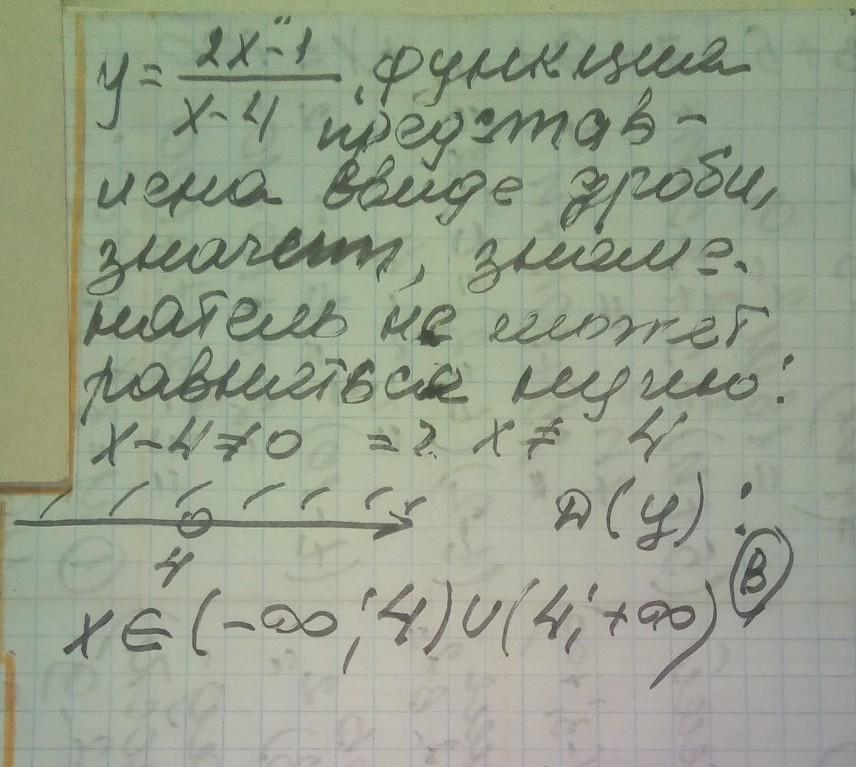 y = (2x-1)/(x-4), функция
представ-
лена ввиде дроби,
значит, знаме-
натель не может
равняться нулю:
x-4≠0 => x ≠ 4
4
D(y):
x∈(-∞;4)∪(4;+∞) В